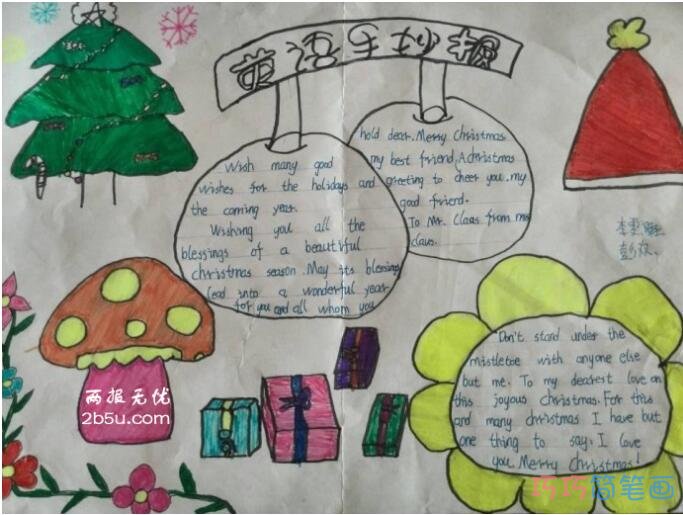 英语手抄报
Wish many good
wishes for the holidays and
the coming year.
Wishing you all the
blessings of a beautiful
christmas season. May its blessings
lead into a wonderful year
for you and all whom you
hold dear. Merry Christmas
my best friend. A christmas
greeting to cheer you. my
good friend.
To Mr. Claus from mrs
claus.
Don't stand under the
mistletoe with anyone else
but me. To my dearest love on
this joyous Christmas. For this
and many christmas I have but
one thing to say. I love
you. Merry Christmas!
两报无忧
2b5u.com
巧巧简笔画